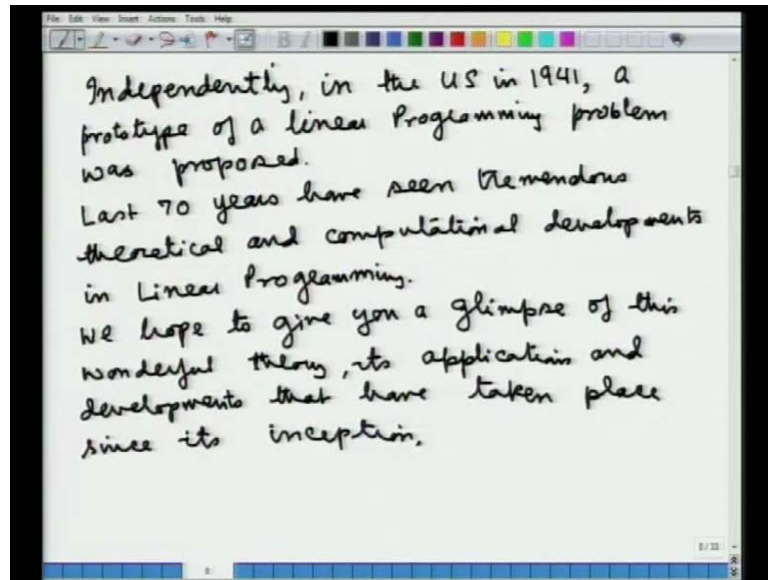 File Edit View Insert Actions Tools Help
Independently, in the US in 1941, a
prototype of a linear Programming problem
was proposed.
Last 70 years have seen tremendous
theoretical and computational developments
in Linear Programming.
We hope to give you a glimpse of this
wonderful theory, its application and
developments that have taken place
since its inception.
8/33
8